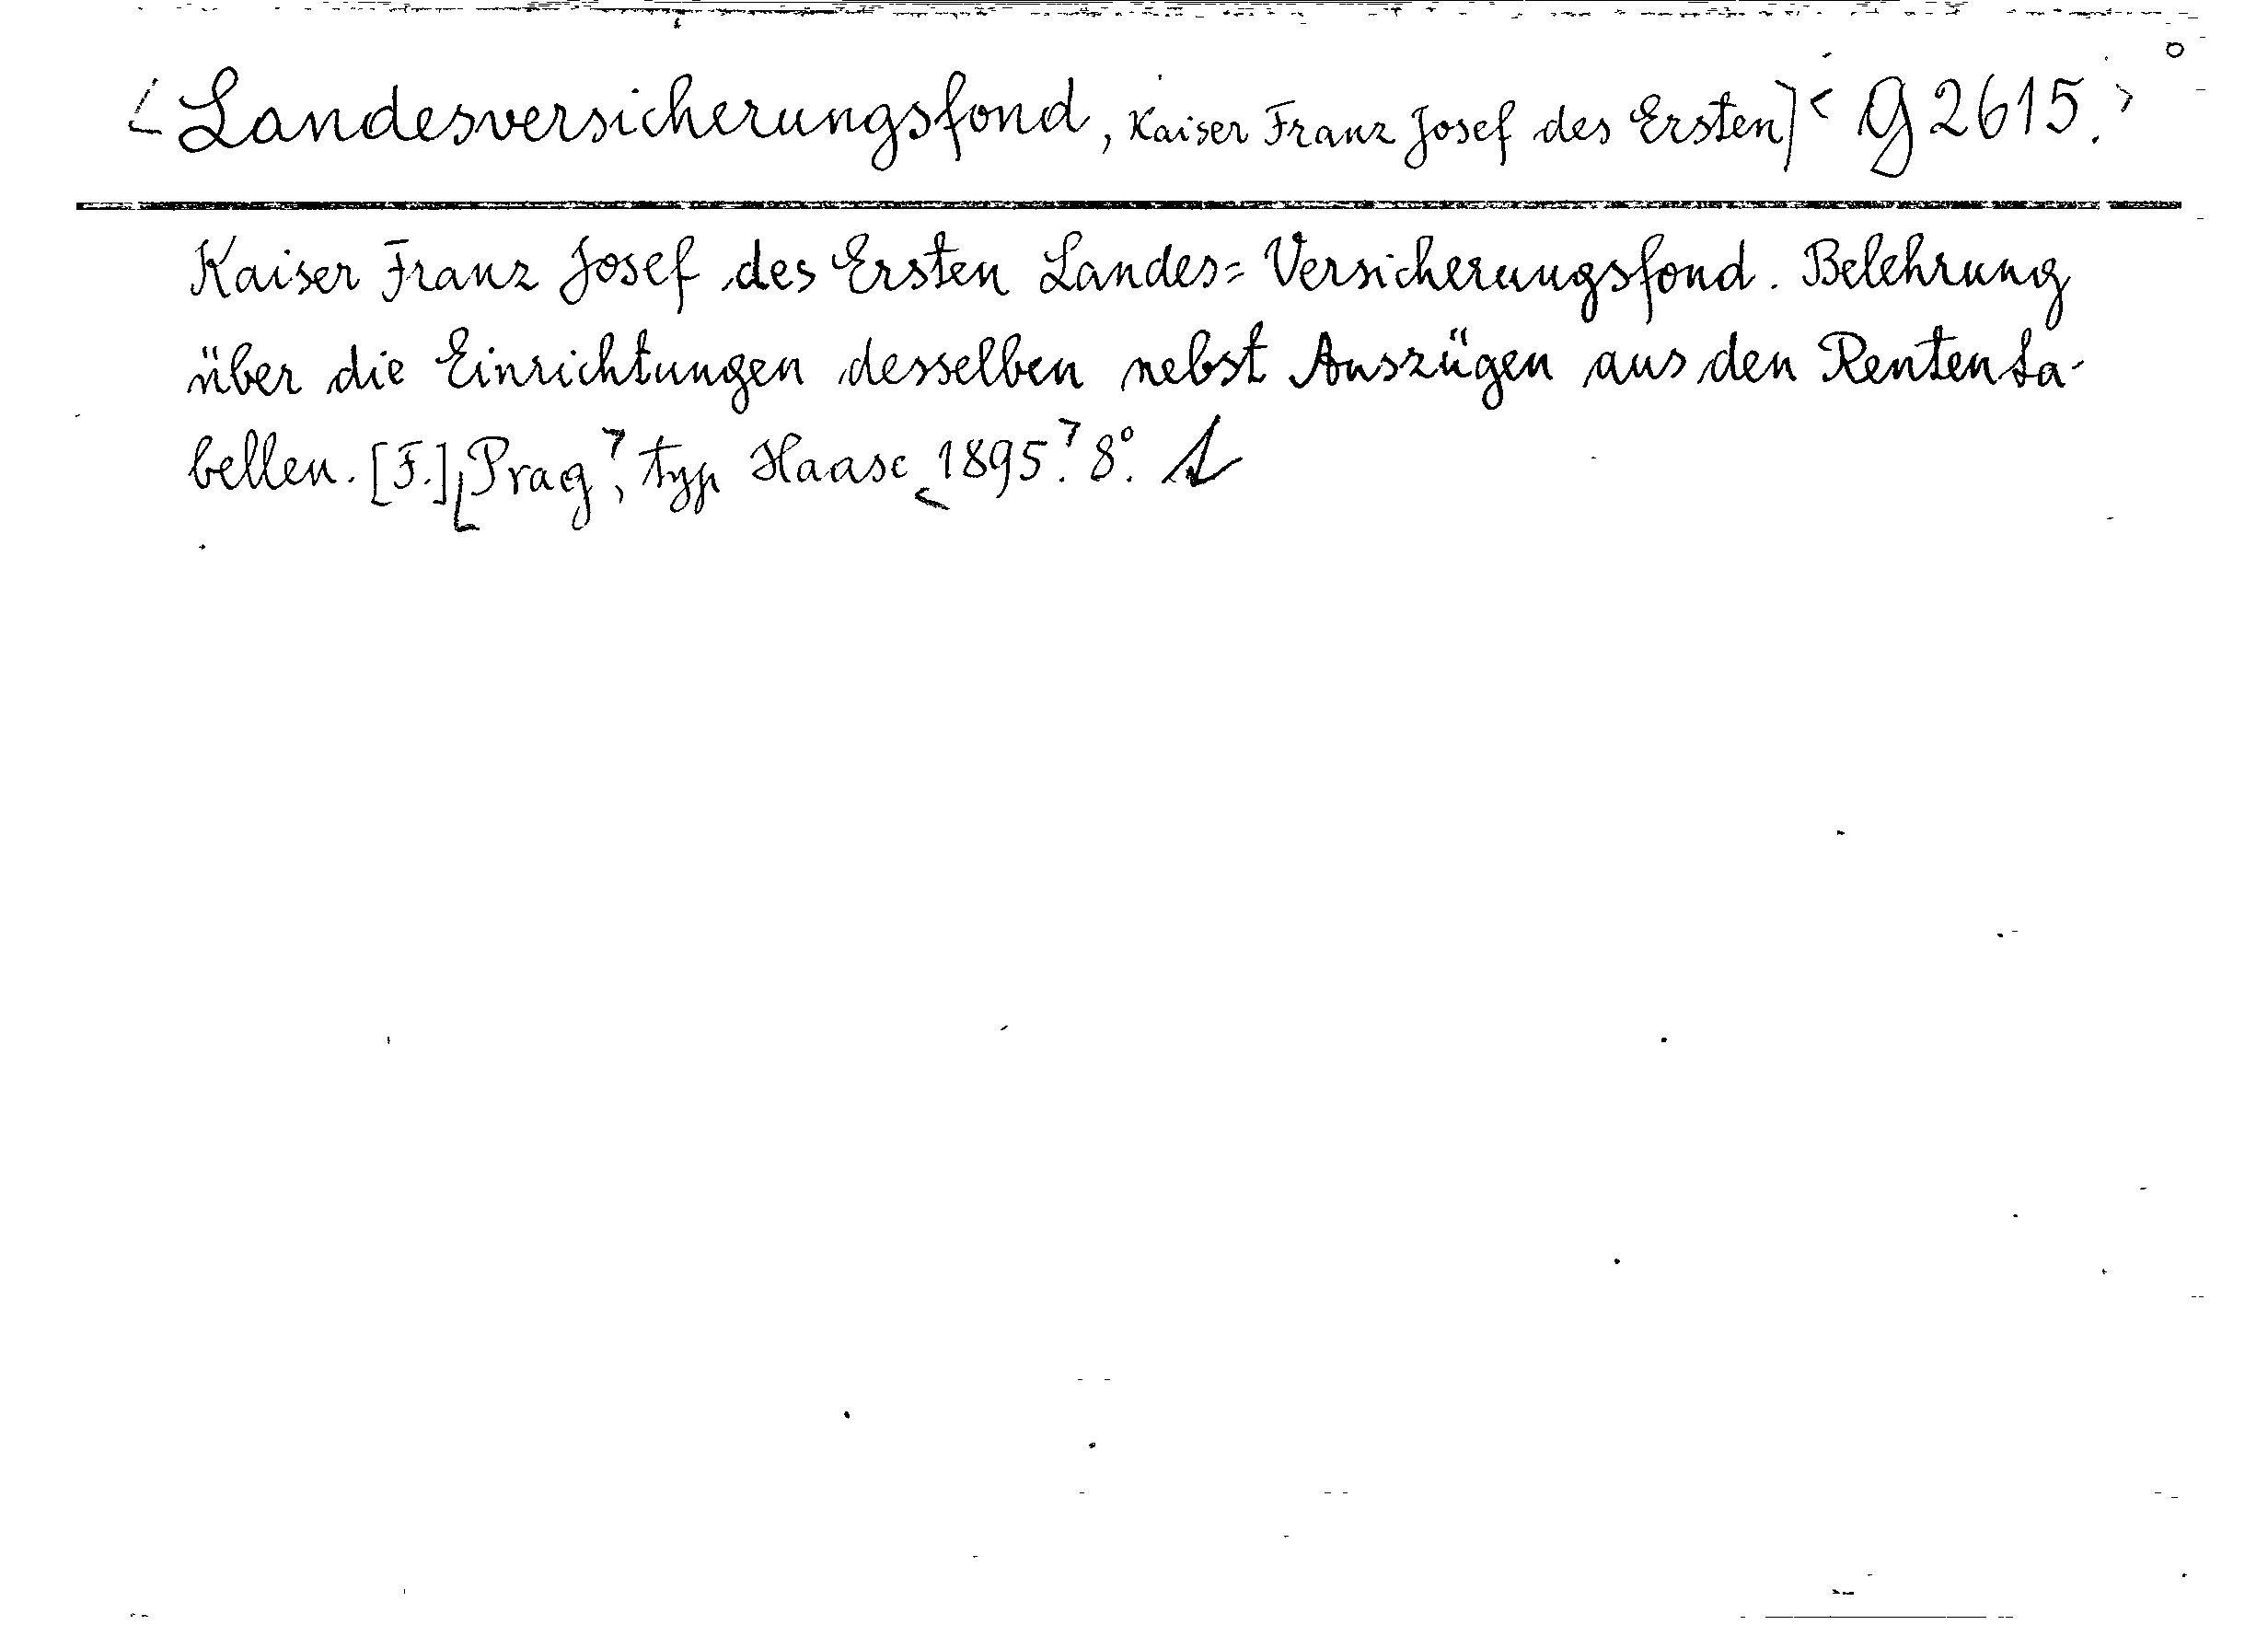 [Landesversicherungsfond, Kaiser Franz Josef des Ersten] <G 2615.>
Kaiser Franz Josef des Ersten Landes=Versicherungsfond. Belehrung
über die Einrichtungen desselben nebst Auszügen aus den Rententa-
bellen. [F.] [Prag], typ Haase <1895.> 8°.